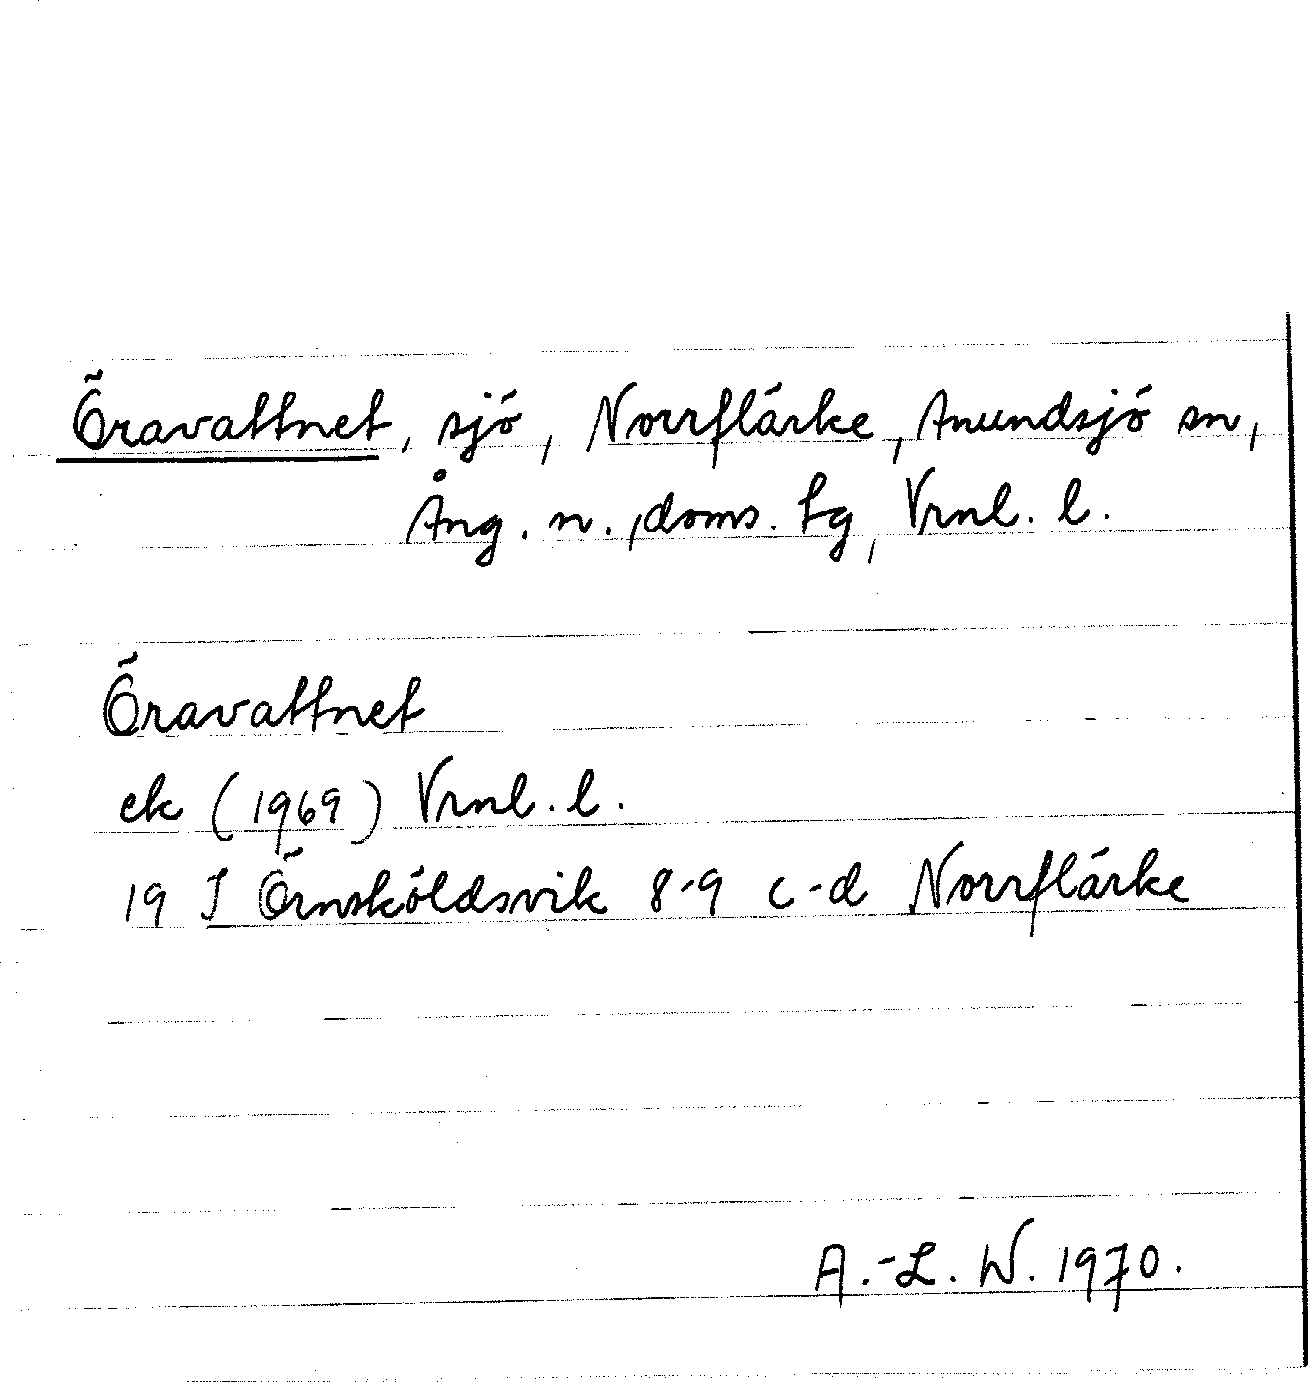 Öravattnet, sjö, Norrflärke, Anundsjö sn,
Ång. n., doms. tg, Vrnl. l.
Öravattnet
ek (1969) Vrnl. l.
19 J Örnsköldsvik 8-9 c-d Norrflärke
A.-L. W. 1970.